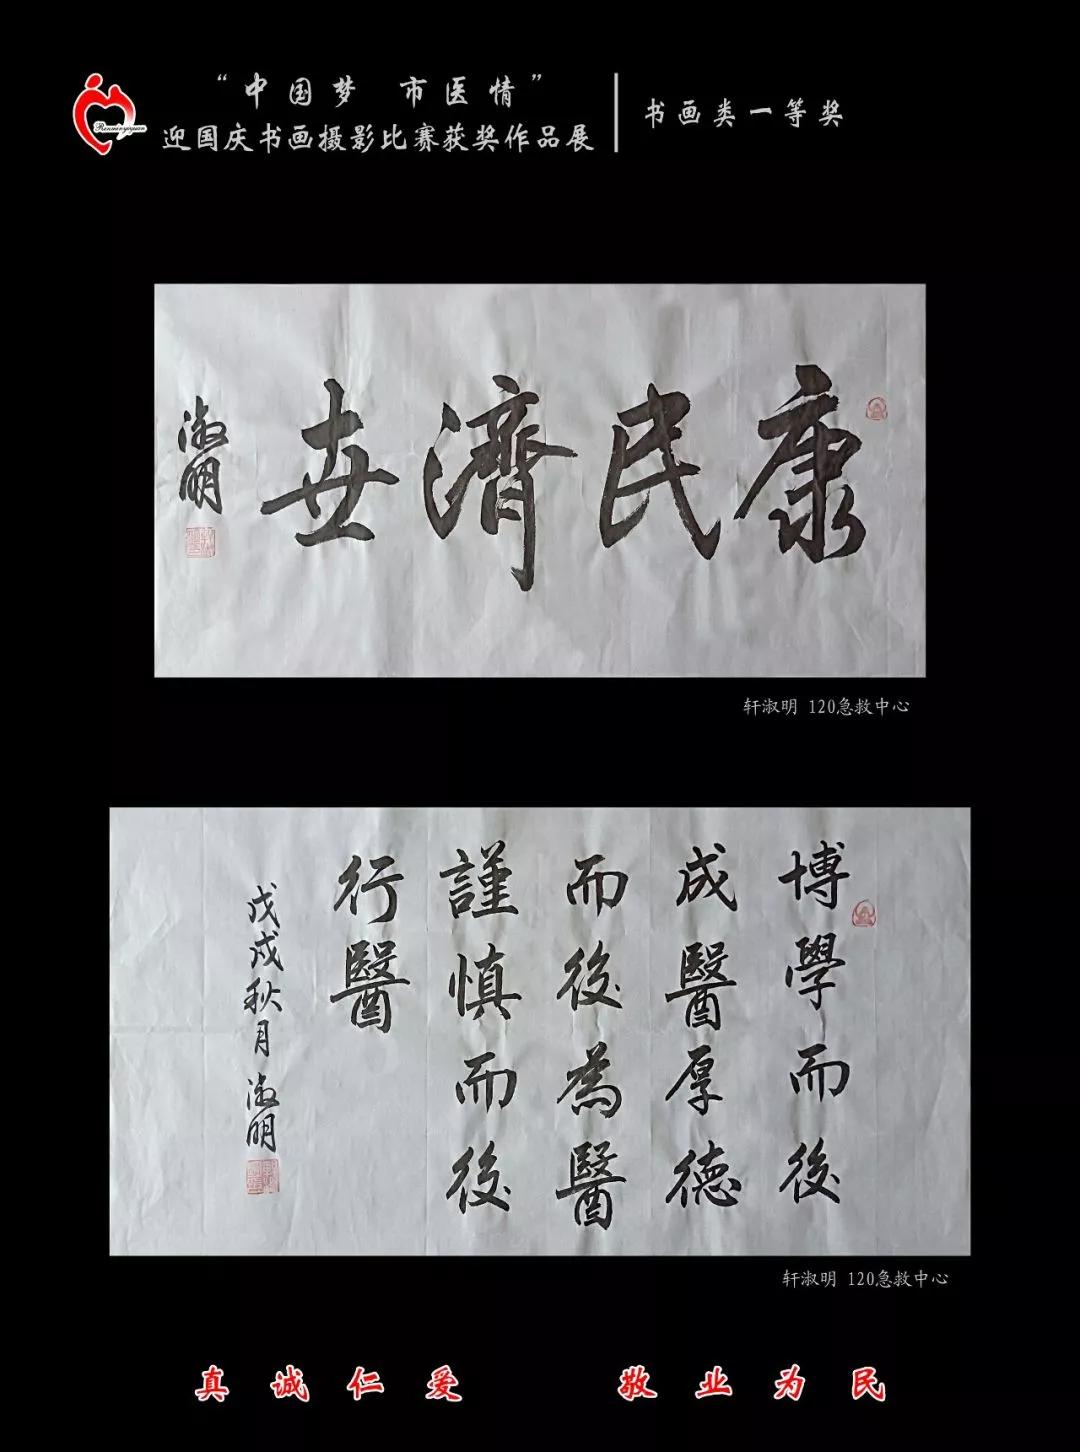 “中国梦 市医情”
迎国庆书画摄影比赛获奖作品展
书画类一等奖
康民濟世
淑明
轩淑明 120急救中心
博學而後
成醫厚德
而後為醫
謹慎而後
行醫
戊戌秋月淑明
轩淑明 120急救中心
真诚仁爱 敬业为民